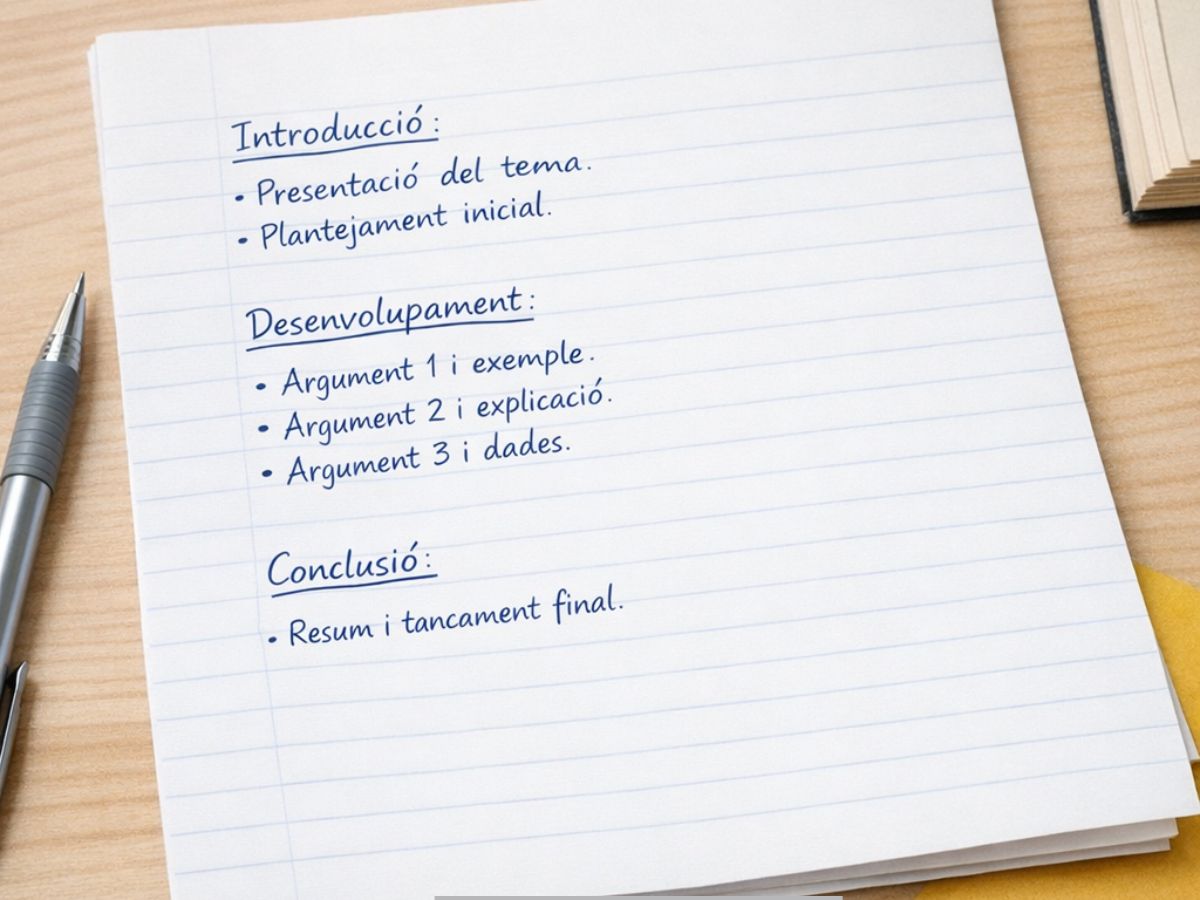 Introducció:
• Presentació del tema.
• Plantejament inicial.
Desenvolupament:
• Argument 1 i exemple.
• Argument 2 i explicació.
• Argument 3 i dades.
Conclusió:
• Resum i tancament final.